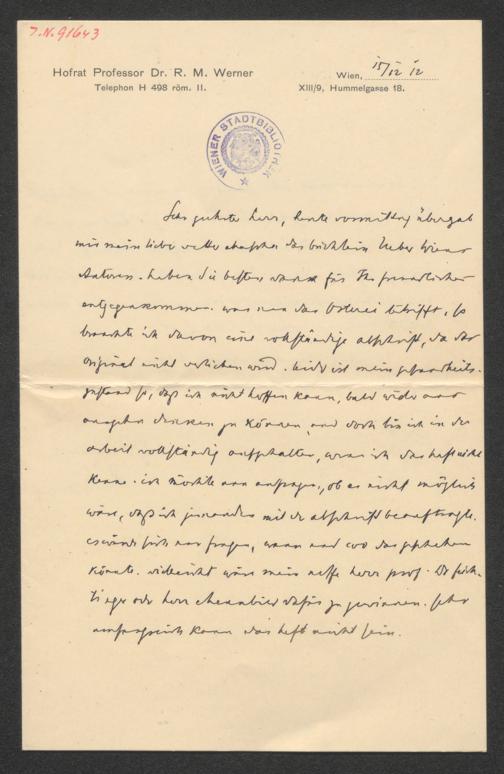 J.N. 91643
Hofrat Professor Dr. R. M. Werner
Telephon H 498 röm. II.
Wien, 15/12 12
XIII/9, Hummelgasse 18.
WIENER STADTBIBLIOTHEK
Sehr geehrter Herr, heute vormittag übergab
mir mein lieber vetter das büchlein Ueber Wiens
Autoren. haben Sie besten dank für Ihr freundliches
entgegenkommen. was nun das betrifft, so
brauchte ich davon eine vollständige abschrift, da das
original nicht verliehen wird. leider ist mein gesundheits-
zustand so, daß ich nicht hoffen kann, bald wider ans
ausgehn denken zu können, und doch bin ich in der
arbeit vollständig aufgehalten, wenn ich das heft nicht
kenne. ich möchte nun anfragen, ob es nicht möglich
wäre, daß ich jemanden mit der abschrift beauftragte.
es würde sich nur fragen, wann und wo das geschehen
könnte. vielleicht wäre mein neffe herr prof. Dr
oder herr dafür zu gewinnen. sehr
umfangreich kann das heft nicht sein.